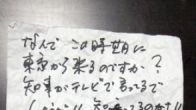 なんでこの時期に
東京から来るのですか？
知事がテレビで言ってるで